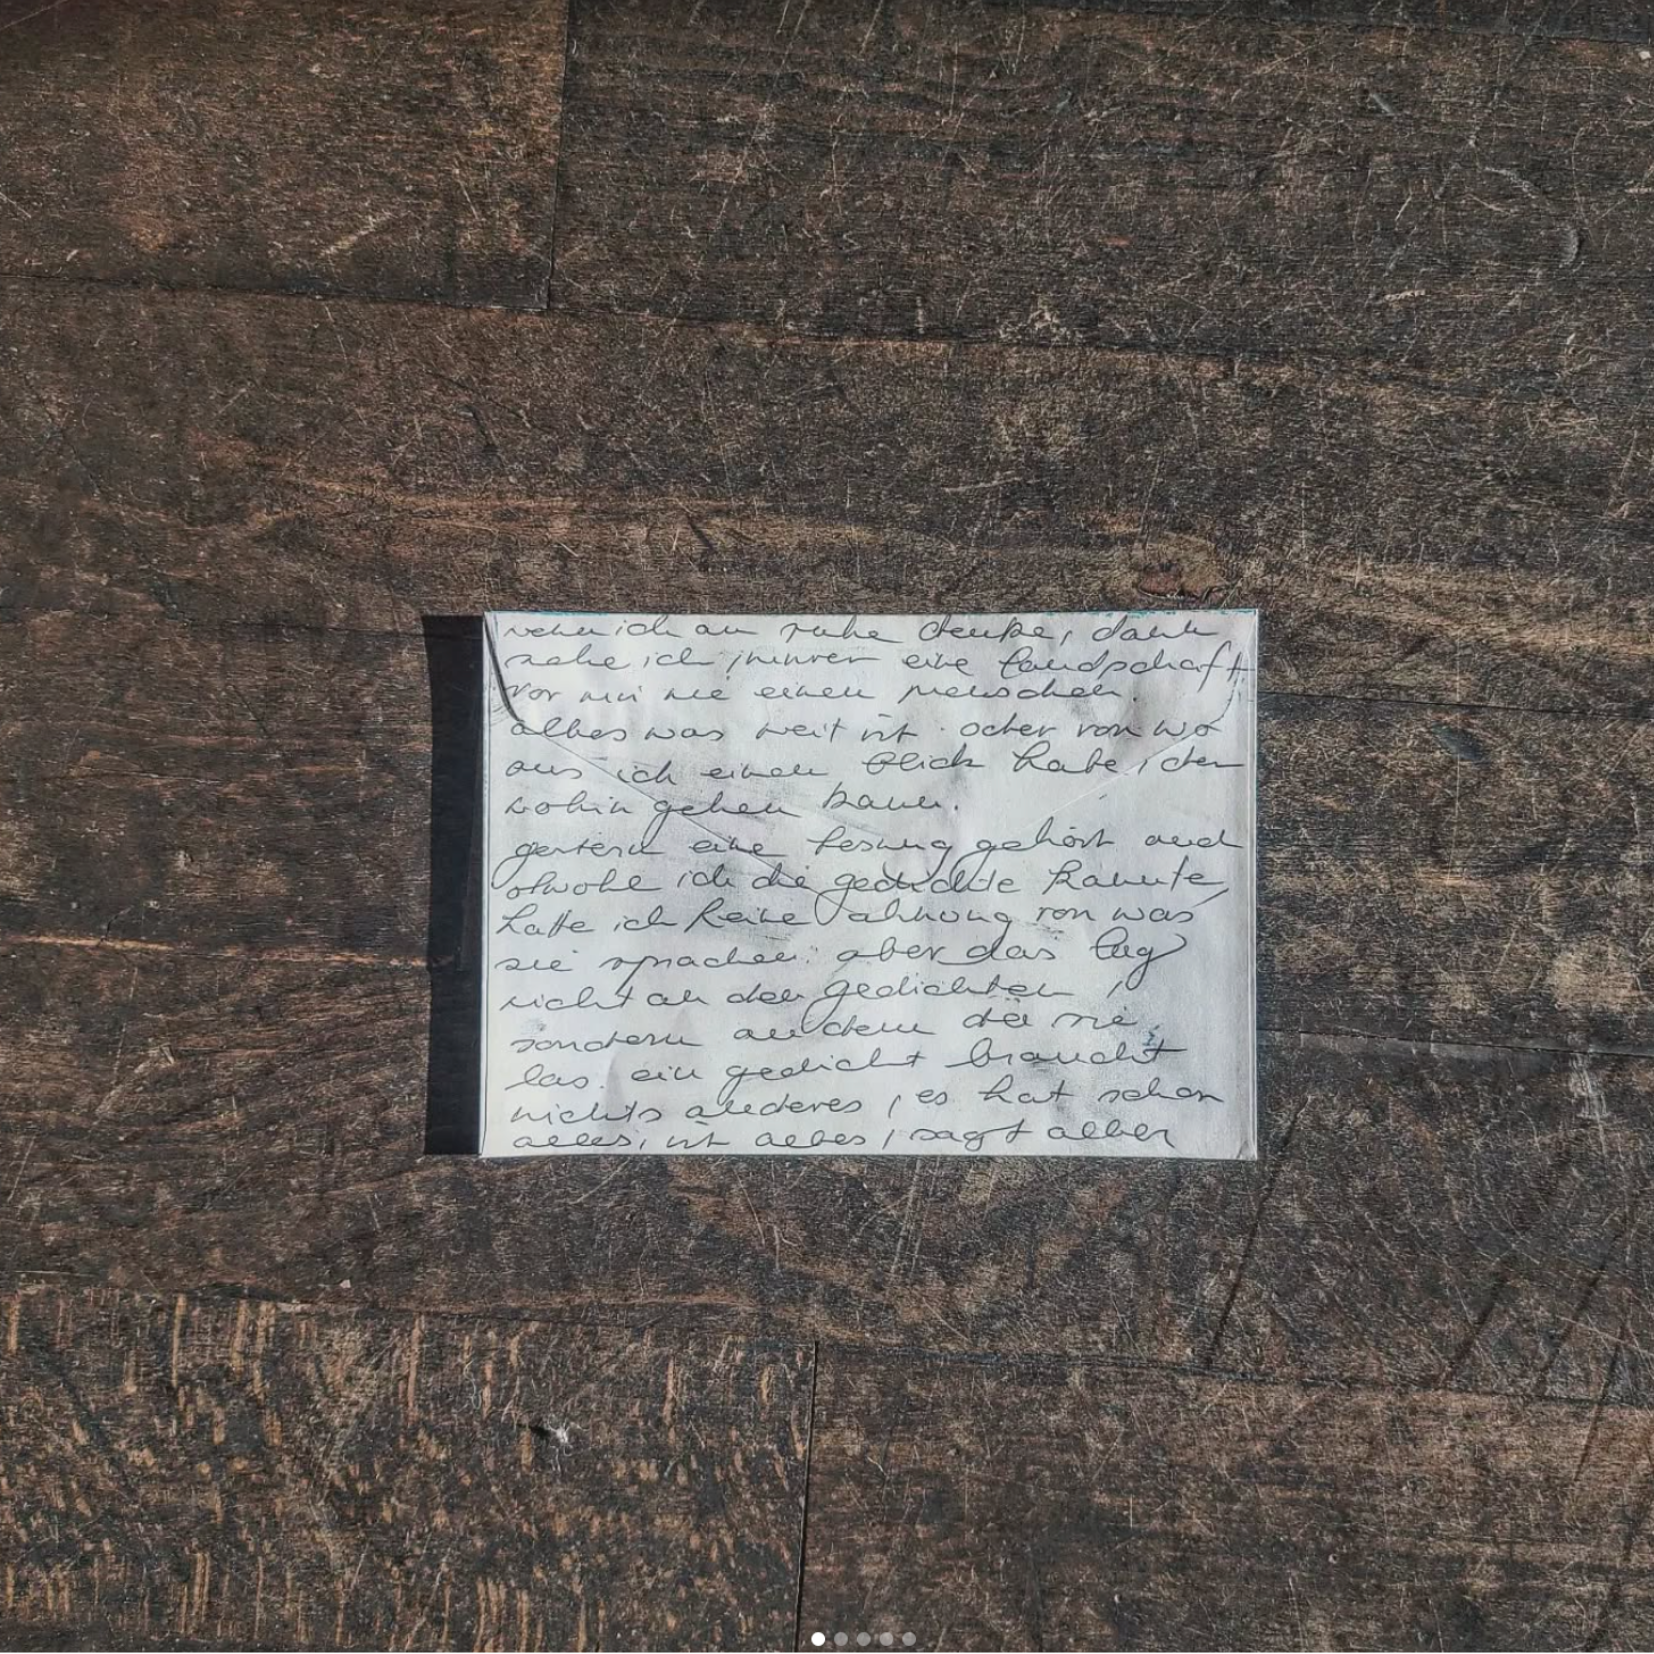 wenn ich an ruhe denke, dann
sehe ich immer eine landschaft
vor mir nie einen menschen.
alles was weit ist. oder von wo
aus ich einen blick habe, der
wohin gehen kann.
gestern eine lesung gehört und
obwohl ich die gedichte kannte,
hatte ich keine ahnung von was
sie sprachen. aber das lag
nicht an den gedichten,
sondern an dem der sie
las. ein gedicht braucht
nichts anderes, es hat schon
alles, ist alles, sagt